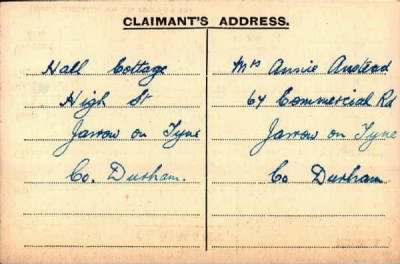 CLAIMANT'S ADDRESS.
Hall Cottage
High St
Jarrow on Tyne
Co. Durham.
Mrs Annie Anstead
64 Commercial Rd
Jarrow on Tyne
Co Durham